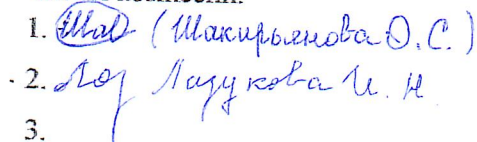 1. Шак (Шакирьянова О.С.)
2. Лаз Лазукова И. Н.
3.